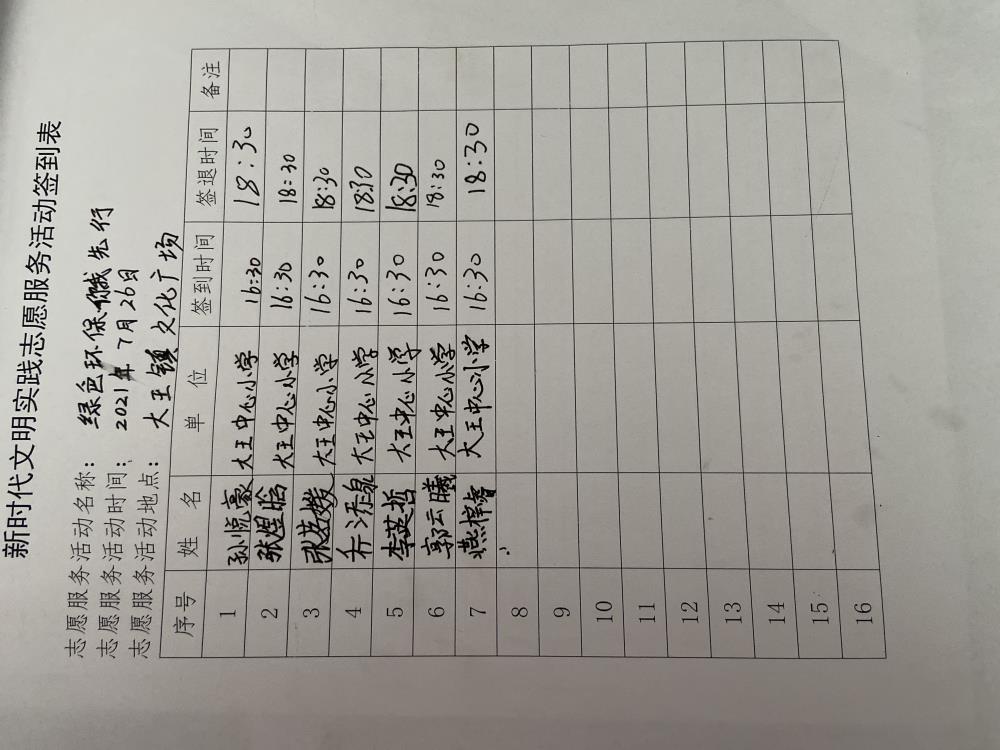 新时代文明实践志愿服务活动签到表
志愿服务活动名称： 绿色环保 你我先行
志愿服务活动时间： 2021年7月26日
志愿服务活动地点： 大王镇文化广场
序号 姓 名 单 位 签到时间 签退时间 备注
1 孙悦豪 大王中心小学 16:30 18:30
2 张煜晗 大王中心小学 16:30 18:30
3 张 大王中心小学 16:30 18:30
4 大王中心小学 16:30 18:30
5 李英哲 大王中心小学 16:30 18:30
6 郭云曦 大王中心小学 16:30 18:30
7 燕梓睿 大王中心小学 16:30 18:30
8
9
10
11
12
13
14
15
16